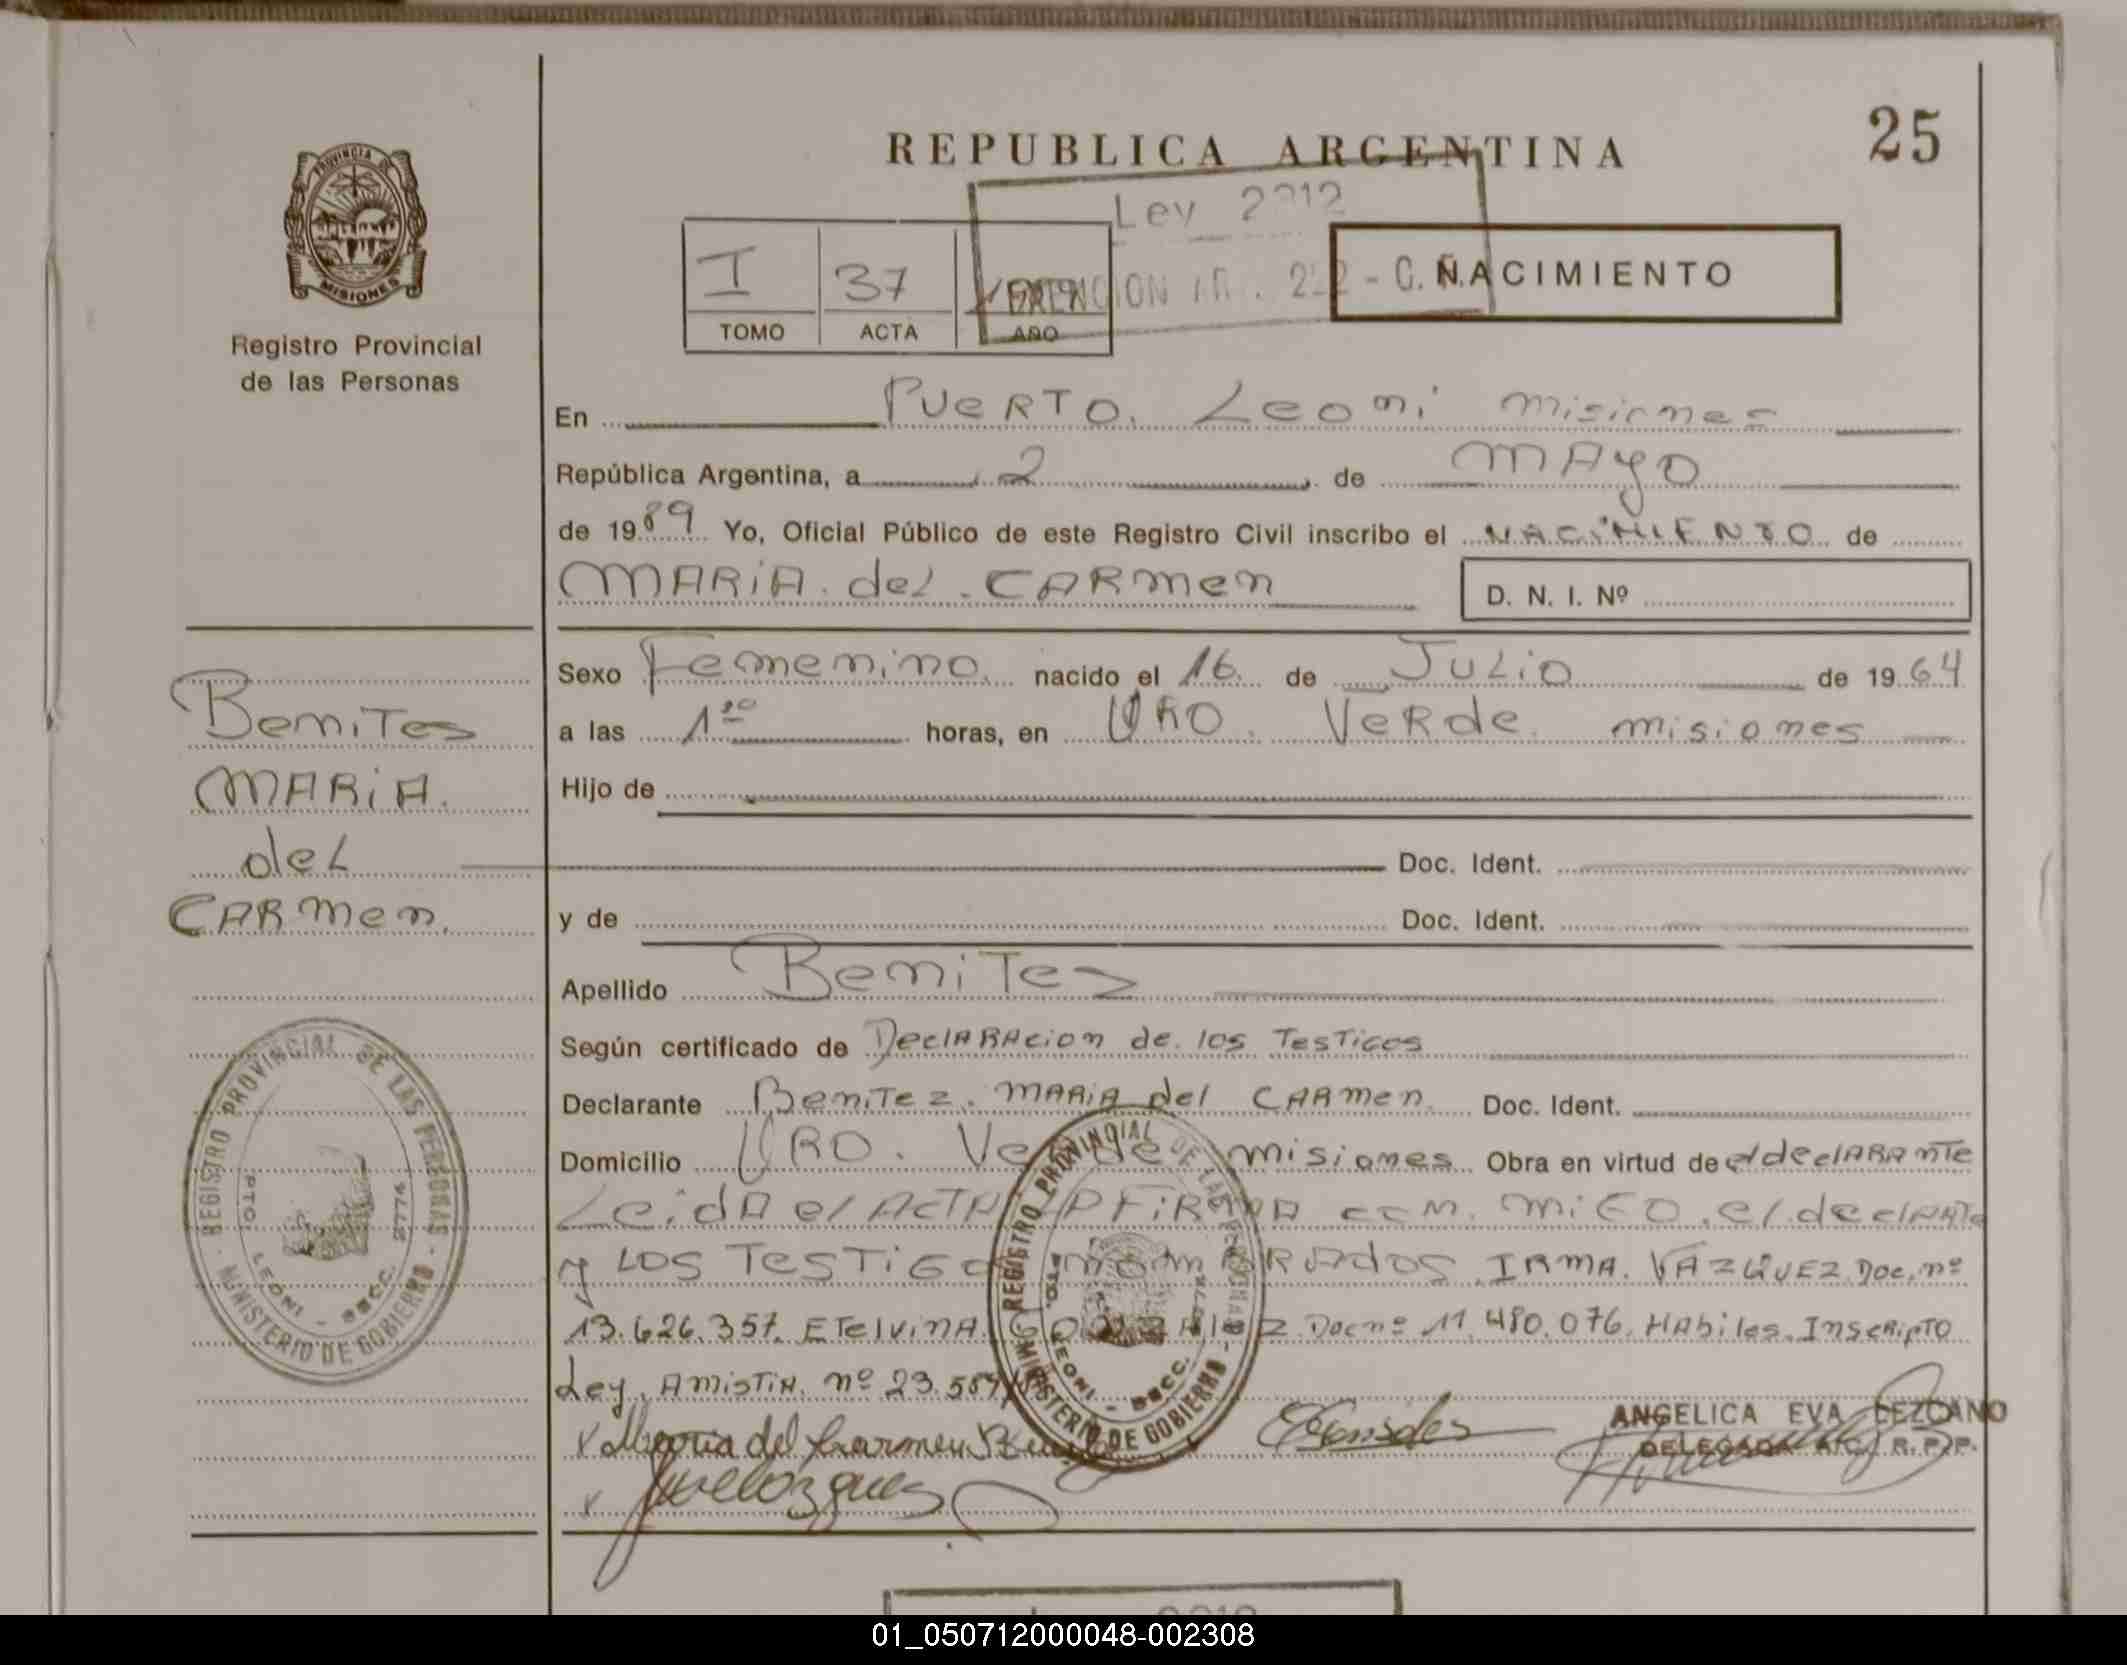 REPUBLICA ARGENTINA
25
PROVINCIA DE
MISIONES
Registro Provincial
de las Personas
Ley 2212
I 37
EXENCION 222 - C.
TOMO ACTA AÑO
NACIMIENTO
En PUERTO. Leoni misiones
República Argentina, a 2 de MAYO
de 1989 Yo, Oficial Público de este Registro Civil inscribo el NACIMIENTO de
MARIA del CARmen
D. N. I. Nº
Sexo Femenino nacido el 16 de JULIO de 1964
a las 1ºº horas, en URO. VeRde misiones
Hijo de
Doc. Ident.
y de Doc. Ident.
Benites
MARIA
del
CARmen.
Apellido BeniTez
Según certificado de DeclARAcion de los TesTigos
Declarante BeniTez. MARIA del CARmen. Doc. Ident.
Domicilio URO. Verde misiones Obra en virtud de el declARAnTe
LeidA el ActA FiRmA con migo el declAnte
y LOS TesTigos nombRados IRMA VAZQUEZ Doc. nº
13.626.357. ETelvinA GonzAlez Doc nº 11.480.076. HAbiles. InscRipTo
Ley. AmisTiA. nº 23.
Maria del Carmen
ANGELICA EVA LEZCANO
DELEGADA R.P.P.
REGISTRO PROVINCIAL DE LAS PERSONAS
PTO. LEONI - SECC. 2774
MINISTERIO DE GOBIERNO
REGISTRO PROVINCIAL DE LAS PERSONAS
PTO. LEONI - SECC.
MINISTERIO DE GOBIERNO
01_050712000048-002308